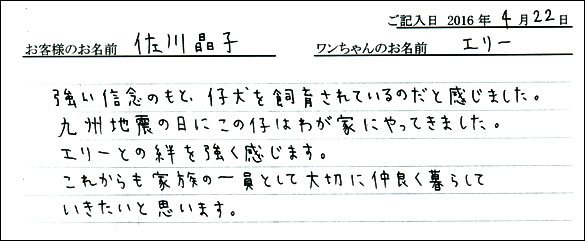 ご記入日 2016 年 4 月 22 日
お客様のお名前 佐川晶子 ワンちゃんのお名前 エリー
強い信念のもと、仔犬を飼育されているのだと感じました。
九州地震の日にこの仔はわが家にやってきました。
エリーとの絆を強く感じます。
これからも家族の一員として大切に仲良く暮らして
いきたいと思います。